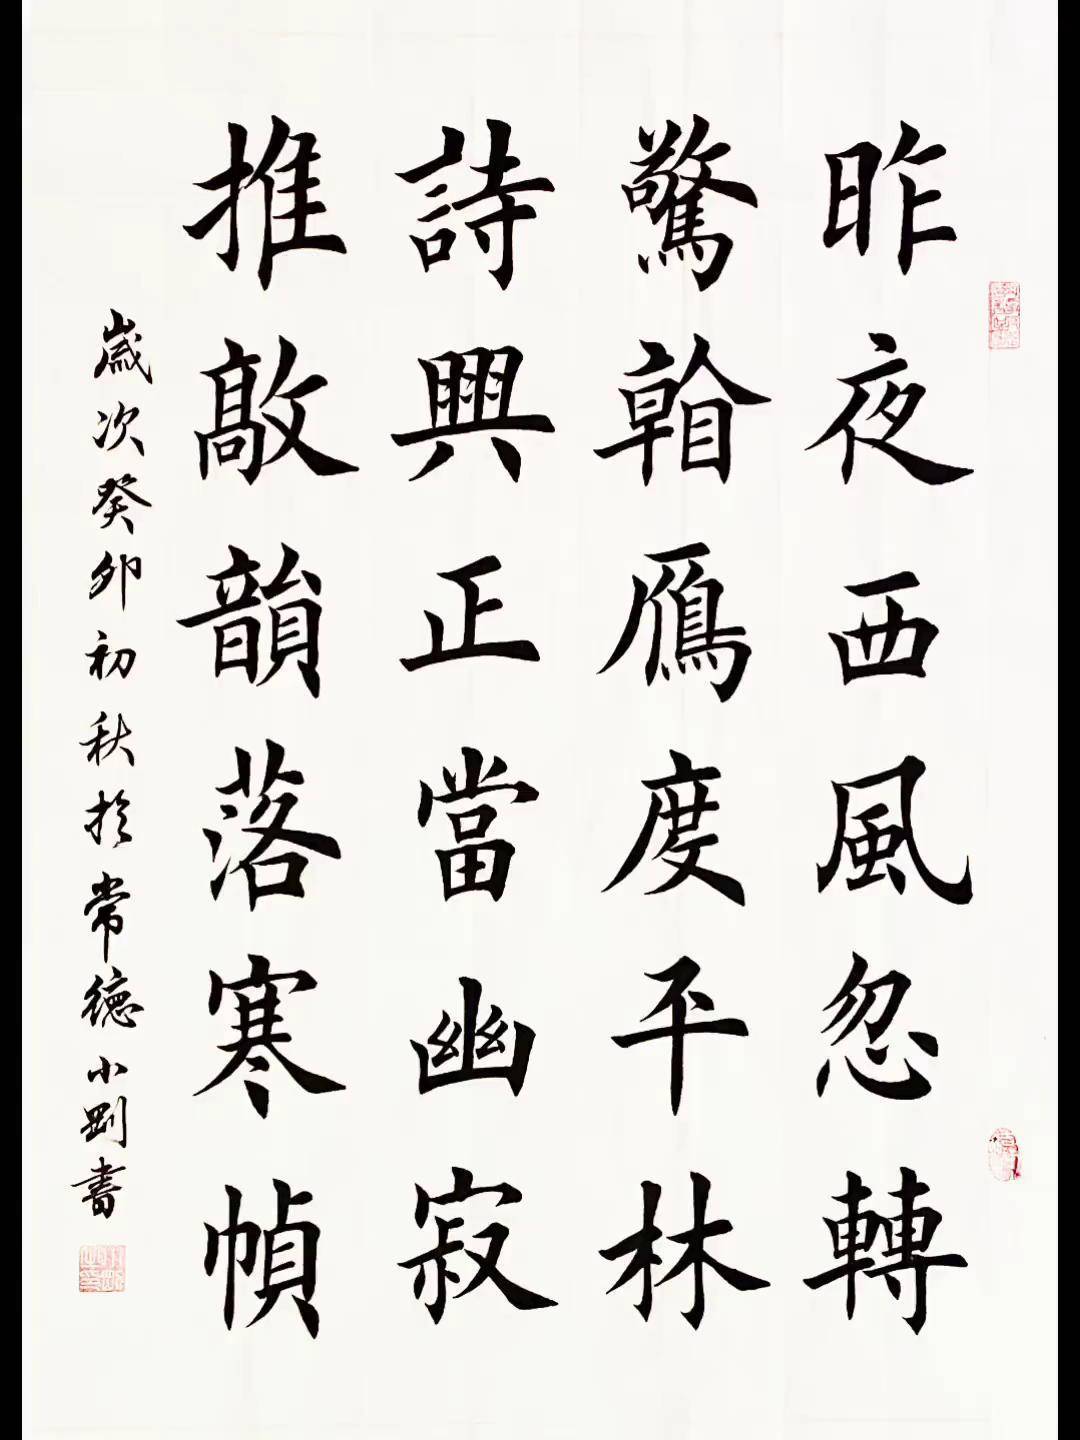 昨夜西風忽轉
驚翰鴈度平林
詩興正當幽寂
推敲韻落寒幀
歲次癸卯初秋於常德小剛書